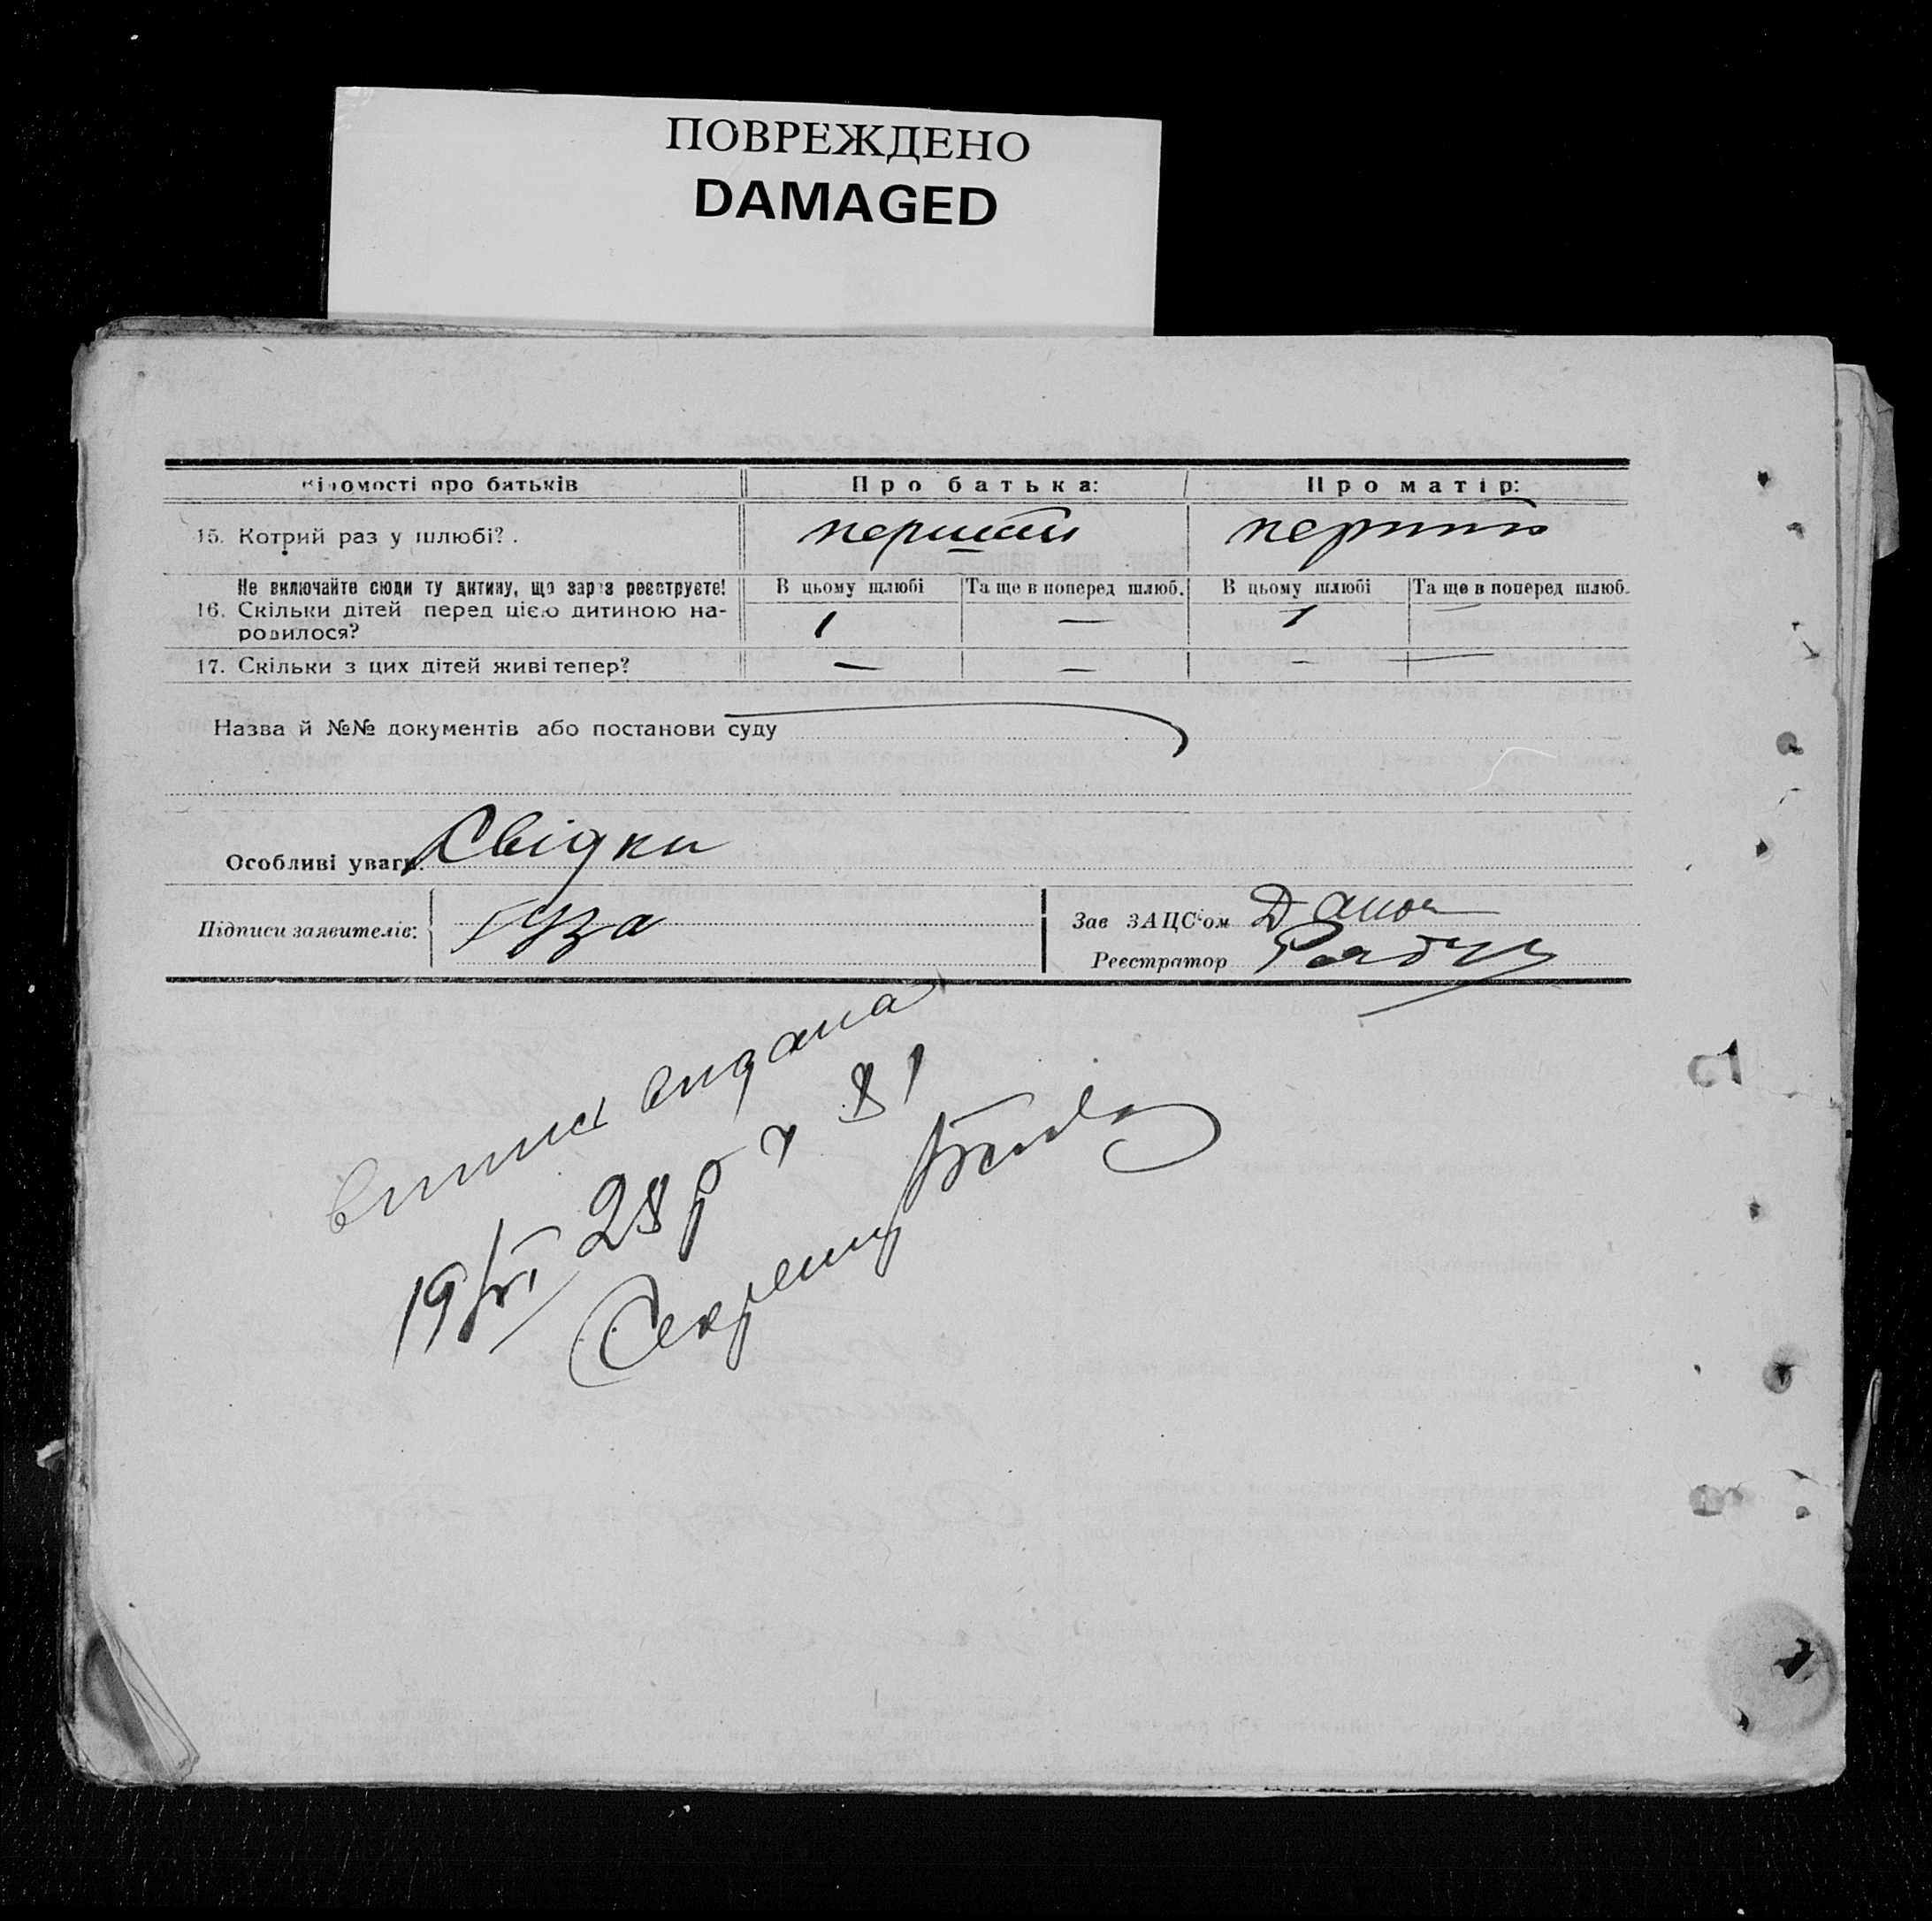 ПОВРЕЖДЕНО
DAMAGED
Відомості про батьків Про батька: Про матір:
15. Котрий раз у шлюбі? . перший перший
Не включайте сюди ту дитину, що зараз реєструєте! В цьому шлюбі Та ще в поперед шлюб. В цьому шлюбі Та ще в поперед шлюб.
16. Скільки дітей перед цією дитиною на-
родилося? 1 — 1 —
17. Скільки з цих дітей живі тепер? — — — —
Назва й №№ документів або постанови суду
Особливі уваги: Свідки
Підписи заявителів: Гуза
Зав ЗАЦС'ом
Реєстратор
Випись видана
19/VI 28 р № 81
Секретар